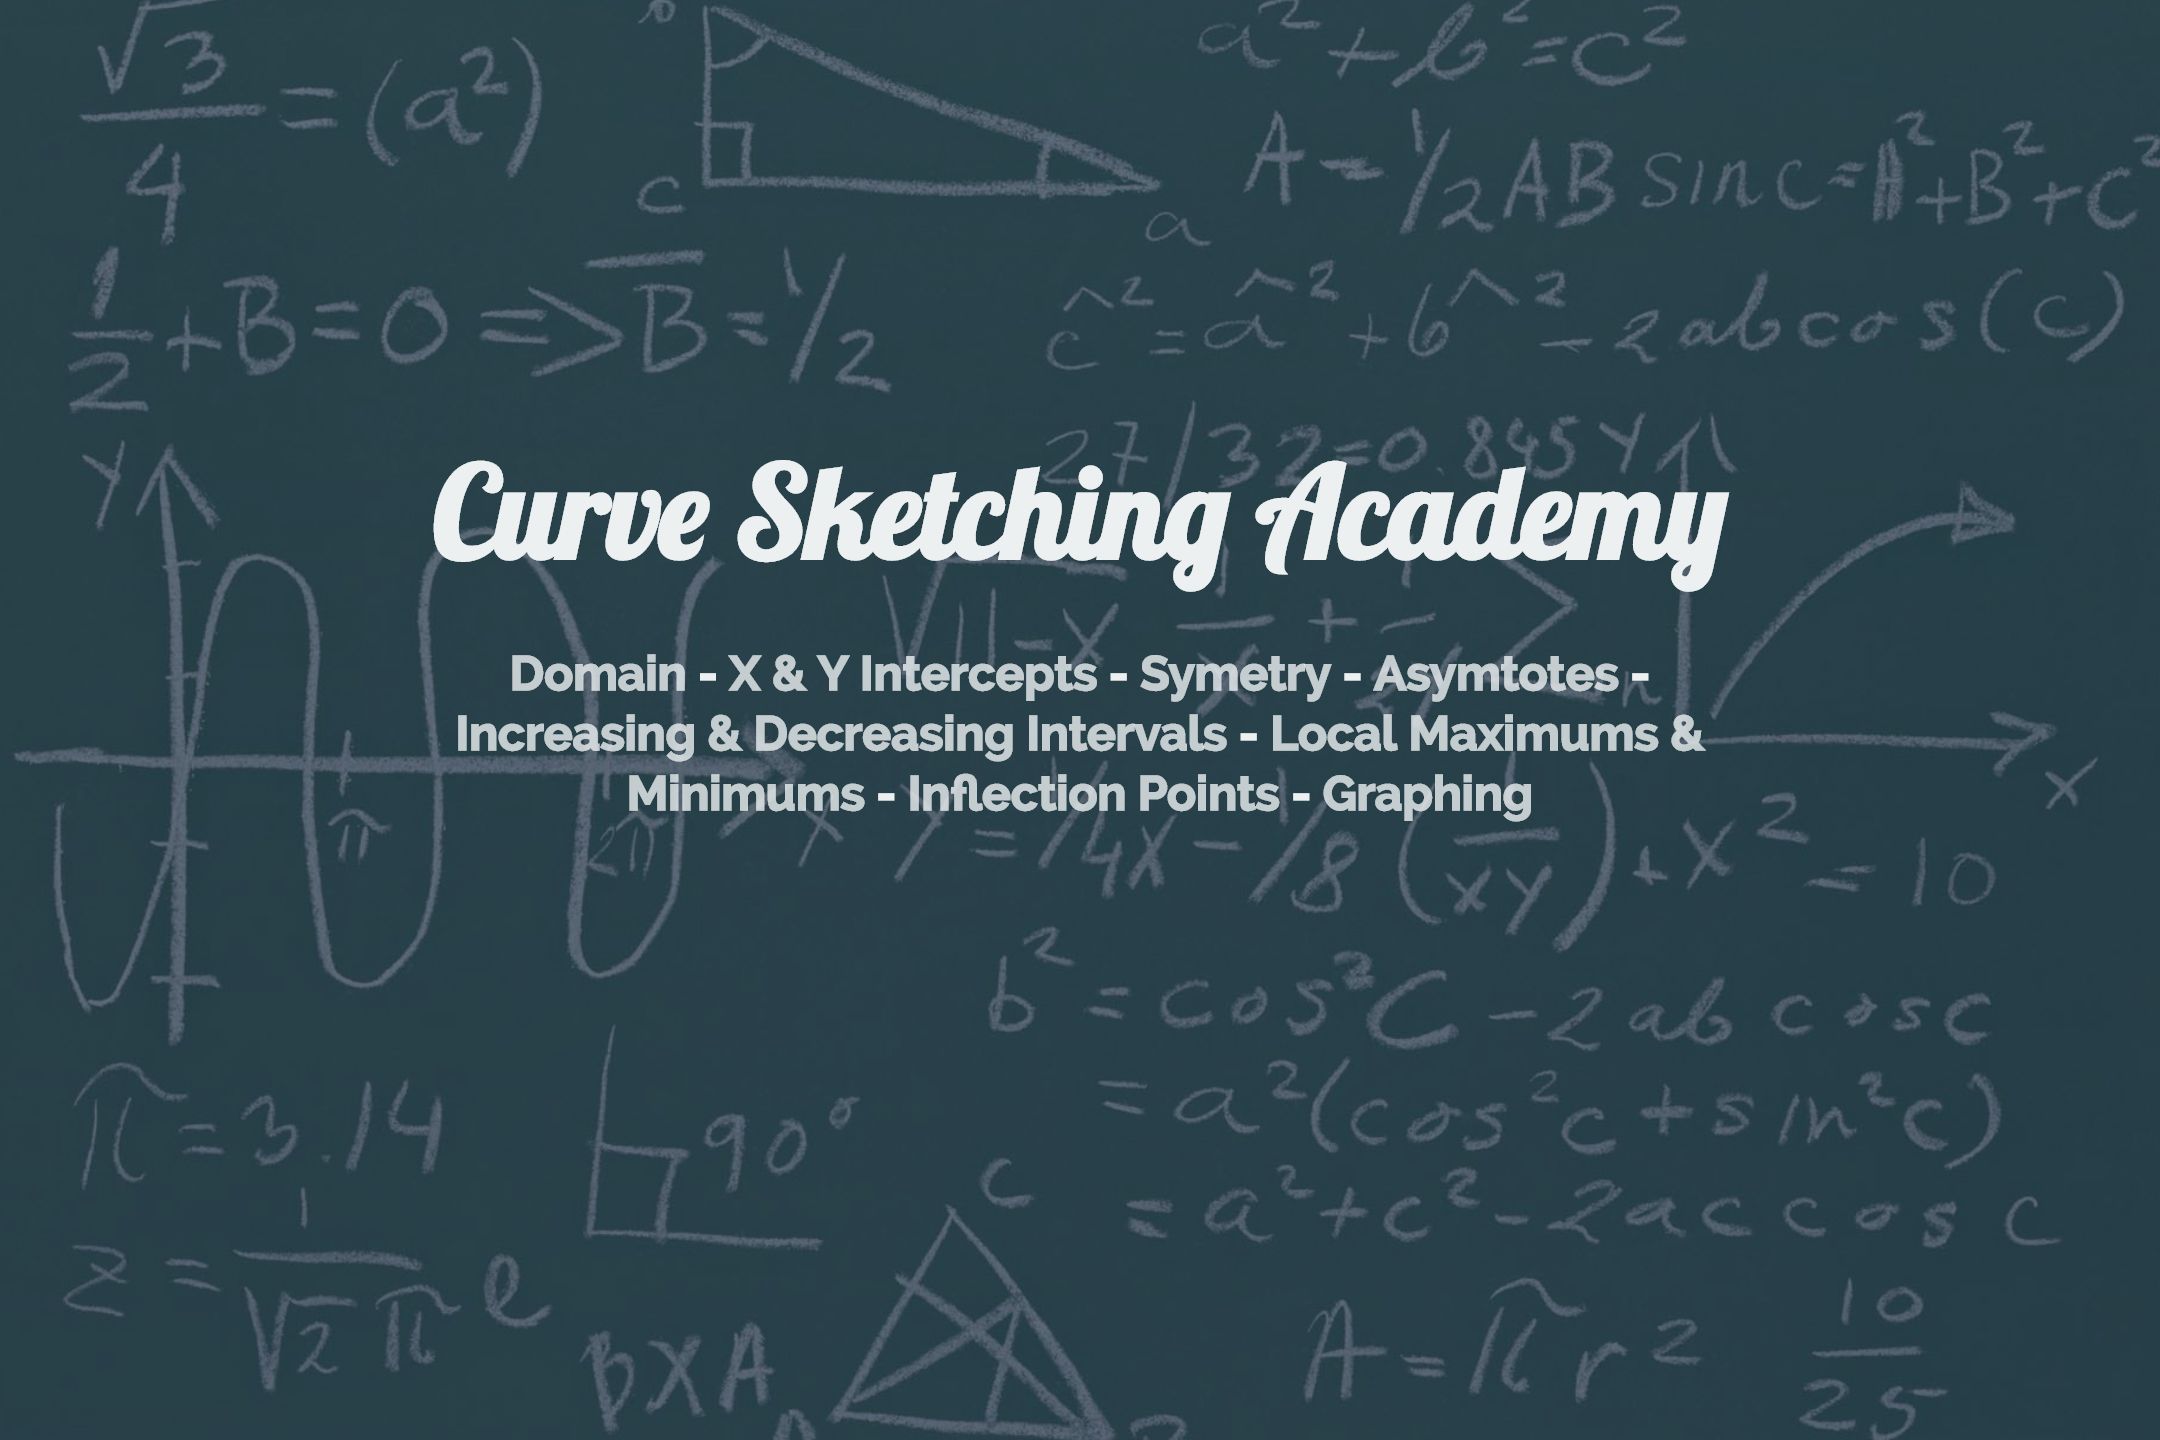 √3/4 = (a²)
a² + b² = c²
c
a
A = 1/2 AB sin c = A² + B² + C²
1/2 + B = 0 => B̅ = 1/2
ĉ² = â² + b^² - 2abcos(c)
27/32=0.845
Y
Y
Curve Sketching Academy
√11-x
Domain - X & Y Intercepts - Symetry - Asymtotes -
Increasing & Decreasing Intervals - Local Maximums &
Minimums - Inflection Points - Graphing
π
2π
x
x
Y = 1/4x - 1/8 (1/xy) + x² = 10
b² = cos²C - 2ab cosc
= a²(cos²c + sin²c)
= a² + c² - 2ac cos c
π = 3.14
90°
c
z = 1/√2π e
BXA
A = πr²
10/25